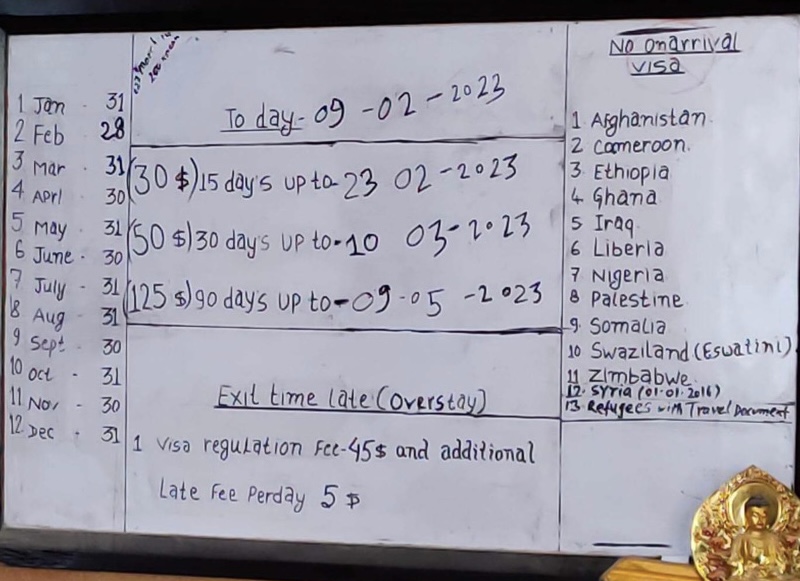 1 Jan - 31
2 Feb 28
3 Mar - 31
4 Aprl 30
5 May 31
6 June - 30
7 July - 31
8 Aug - 31
9 Sept - 30
10 Oct - 31
11 Nov - 30
12 Dec - 31
To day - 09 - 02 - 2023
(30 $) 15 day's up to - 23 02 - 2023
(50 $) 30 day's up to - 10 03 - 2023
(125 $) 90 day's up to - 09 - 05 - 2023
Exit time late (Overstay)
1 Visa regulation Fee - 45$ and additional
Late Fee Perday 5 $
No onarrival
visa
1 Afghanistan
2 Cameroon.
3 Ethiopia
4 Ghana
5 Iraq
6 Liberia
7 Nigeria
8 Palestine
9. Somalia
10 Swaziland (Eswatini)
11 Zimbabwe
12. Syria (01.01.2016)
13. Refugees with Travel Document